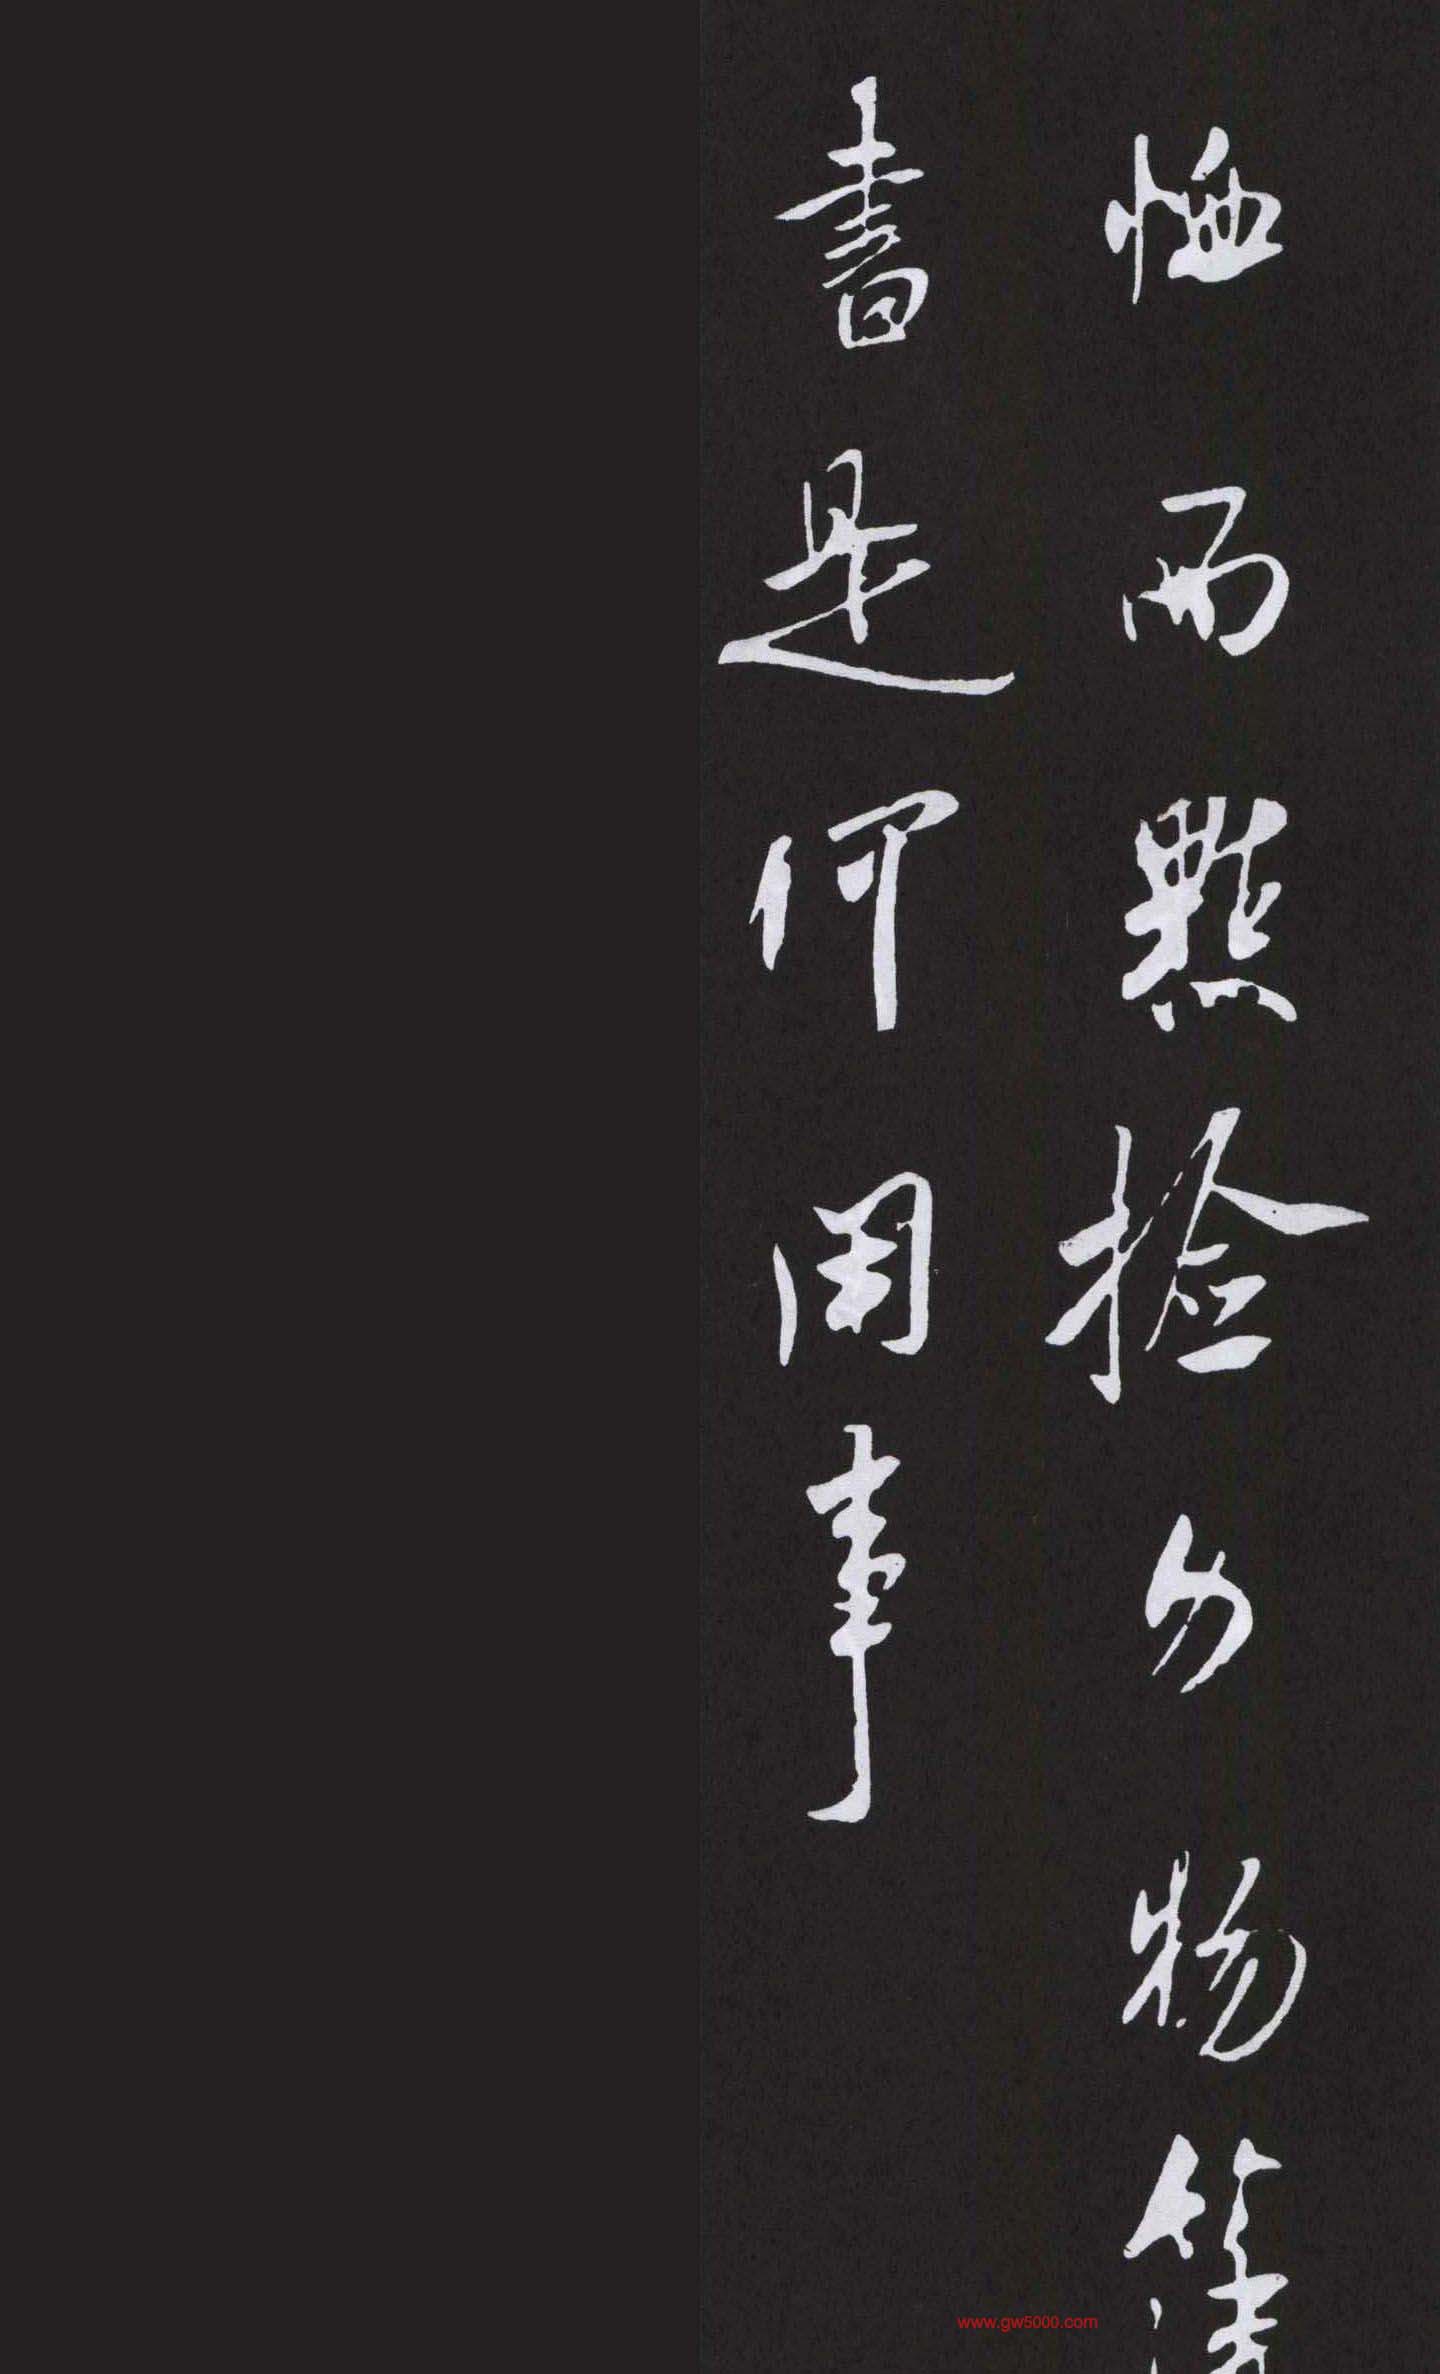 恤而點撿勿物簿
書是何用事
www.gw5000.com